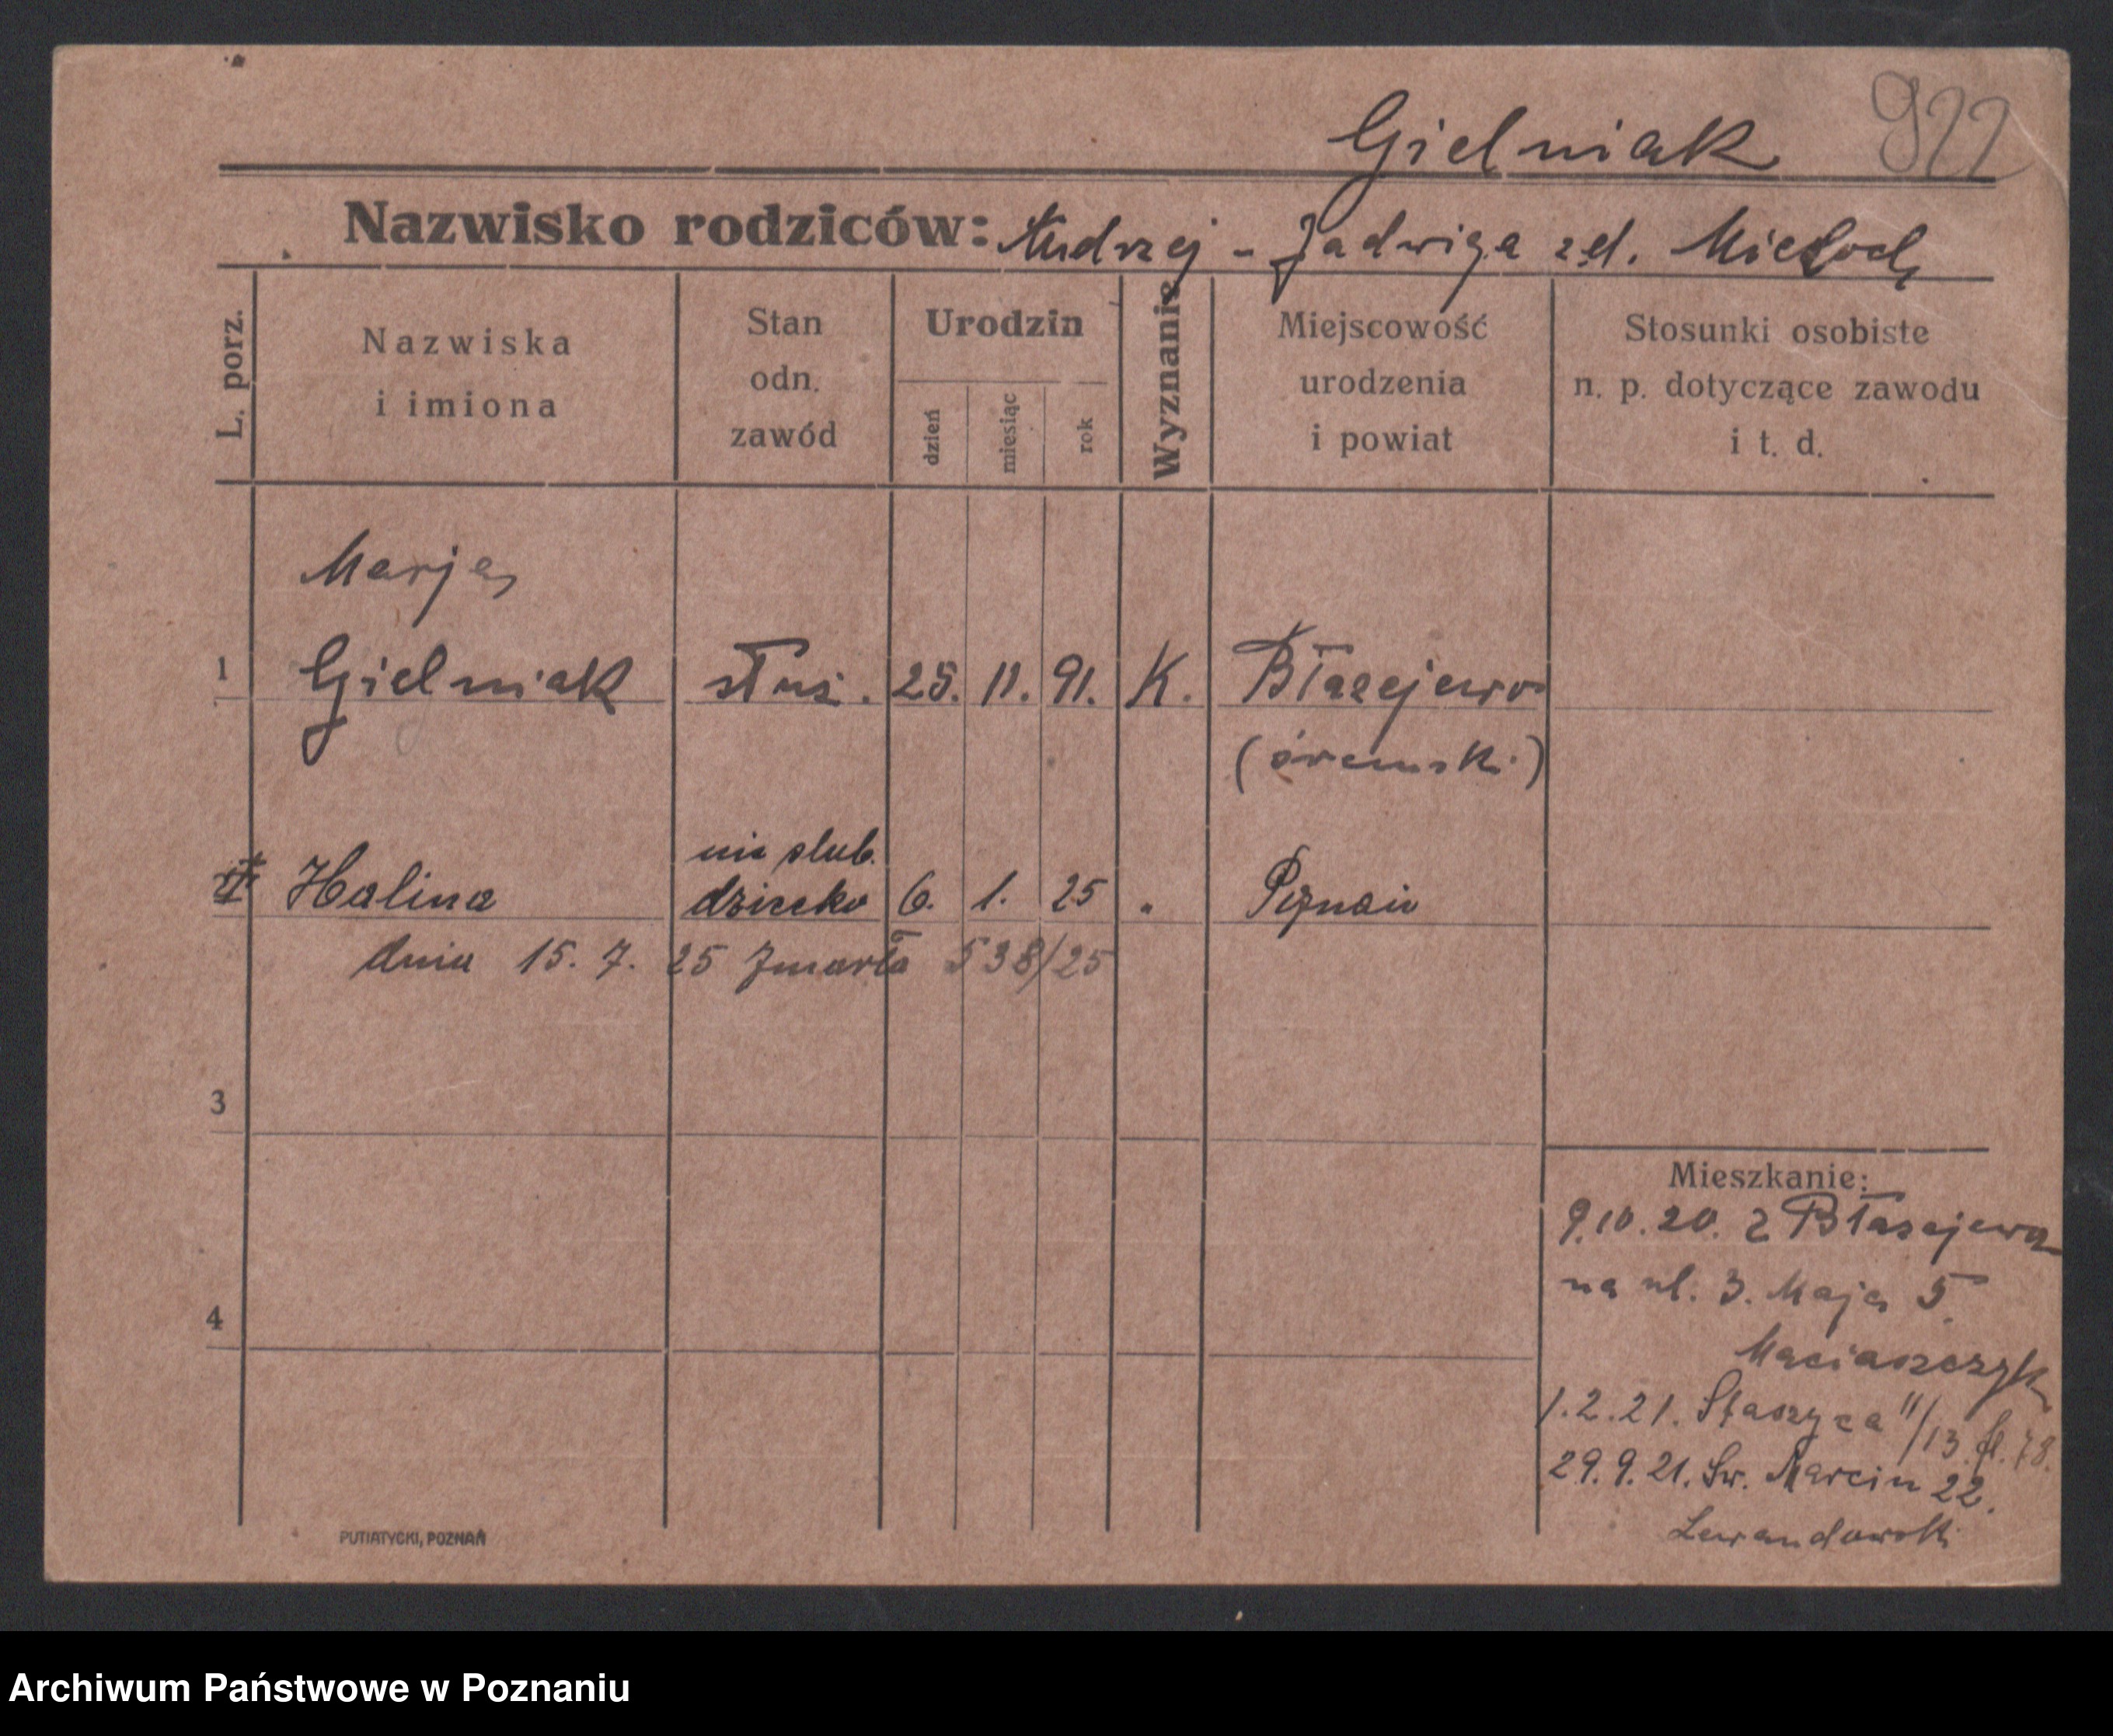 Gielniak 922
Nazwisko rodziców: Andrzej - Jadwiga zd. Mieloch
L. porz.
Nazwiska
i imiona
Stan
odn.
zawód
Urodzin
dzień
miesiąc
rok
Wyznanie
Miejscowość
urodzenia
i powiat
Stosunki osobiste
n. p. dotyczące zawodu
i t. d.
Marja
1 Gielniak służ. 25. 11. 91. K. Błażejewo
(śremski)
nie ślub.
Halina dziecko 6. 1. 25 " Poznań
dnia 15. 7. 25 Zmarła 538/25
3
4
Mieszkanie:
9.10.20. z Błażejewa
na ul. 3. Maja 5
Maciaszczyk
1.2.21. Staszyca 11/13 fl. 78.
29.9.21. Św. Marcin 22.
Lewandowski
PUTIATYCKI, POZNAŃ
Archiwum Państwowe w Poznaniu